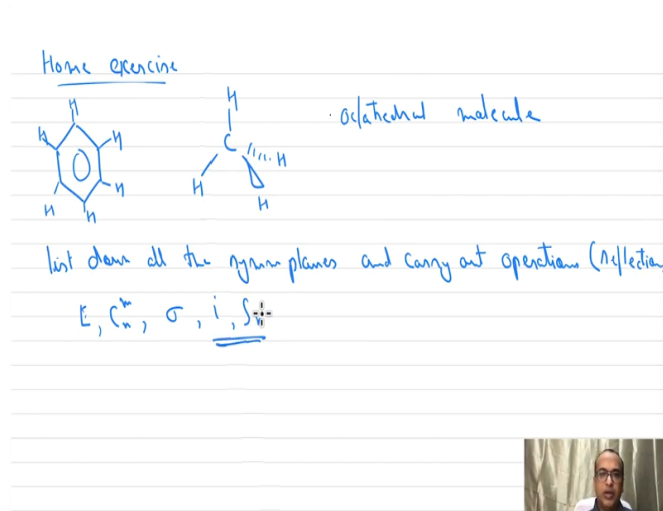 Home exercise
H
H
H
H
H
H
H
C
H
H
H
octahedral molecule
list down all the symm planes and carry out operations (reflection
E, C_n^m, σ, i, S_n